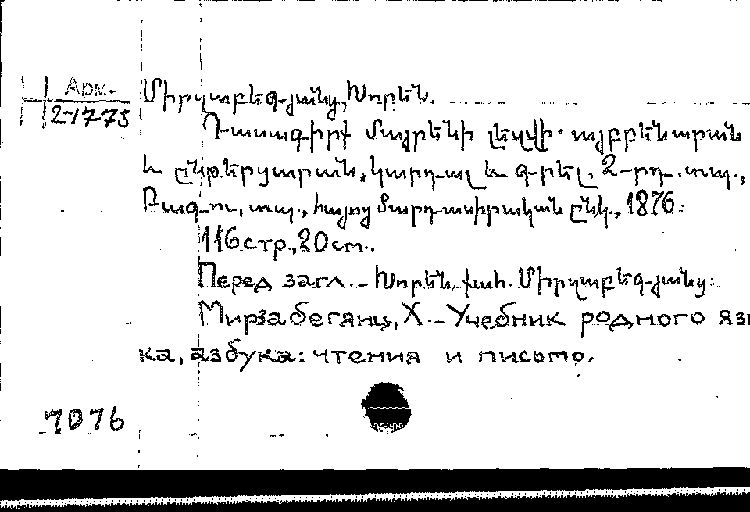 Арм.
2-1775
Միրզաբեգ-յանց, Խորեն.
Դասագիրք մայրենի լեզվի. այբբենարան
և ընթերցարան, կարդալ և գրել. 2-րդ. տպ.,
Բագու, տպ., հայոց մարդասիրական ընկ., 1876.
116 стр., 20 см.
Перед загл. - Խորեն քահ. Միրզաբեգ-յանց:
Мирзабегянц, Х. - Учебник родного язы
ка, азбука: чтения и письмо.
7076